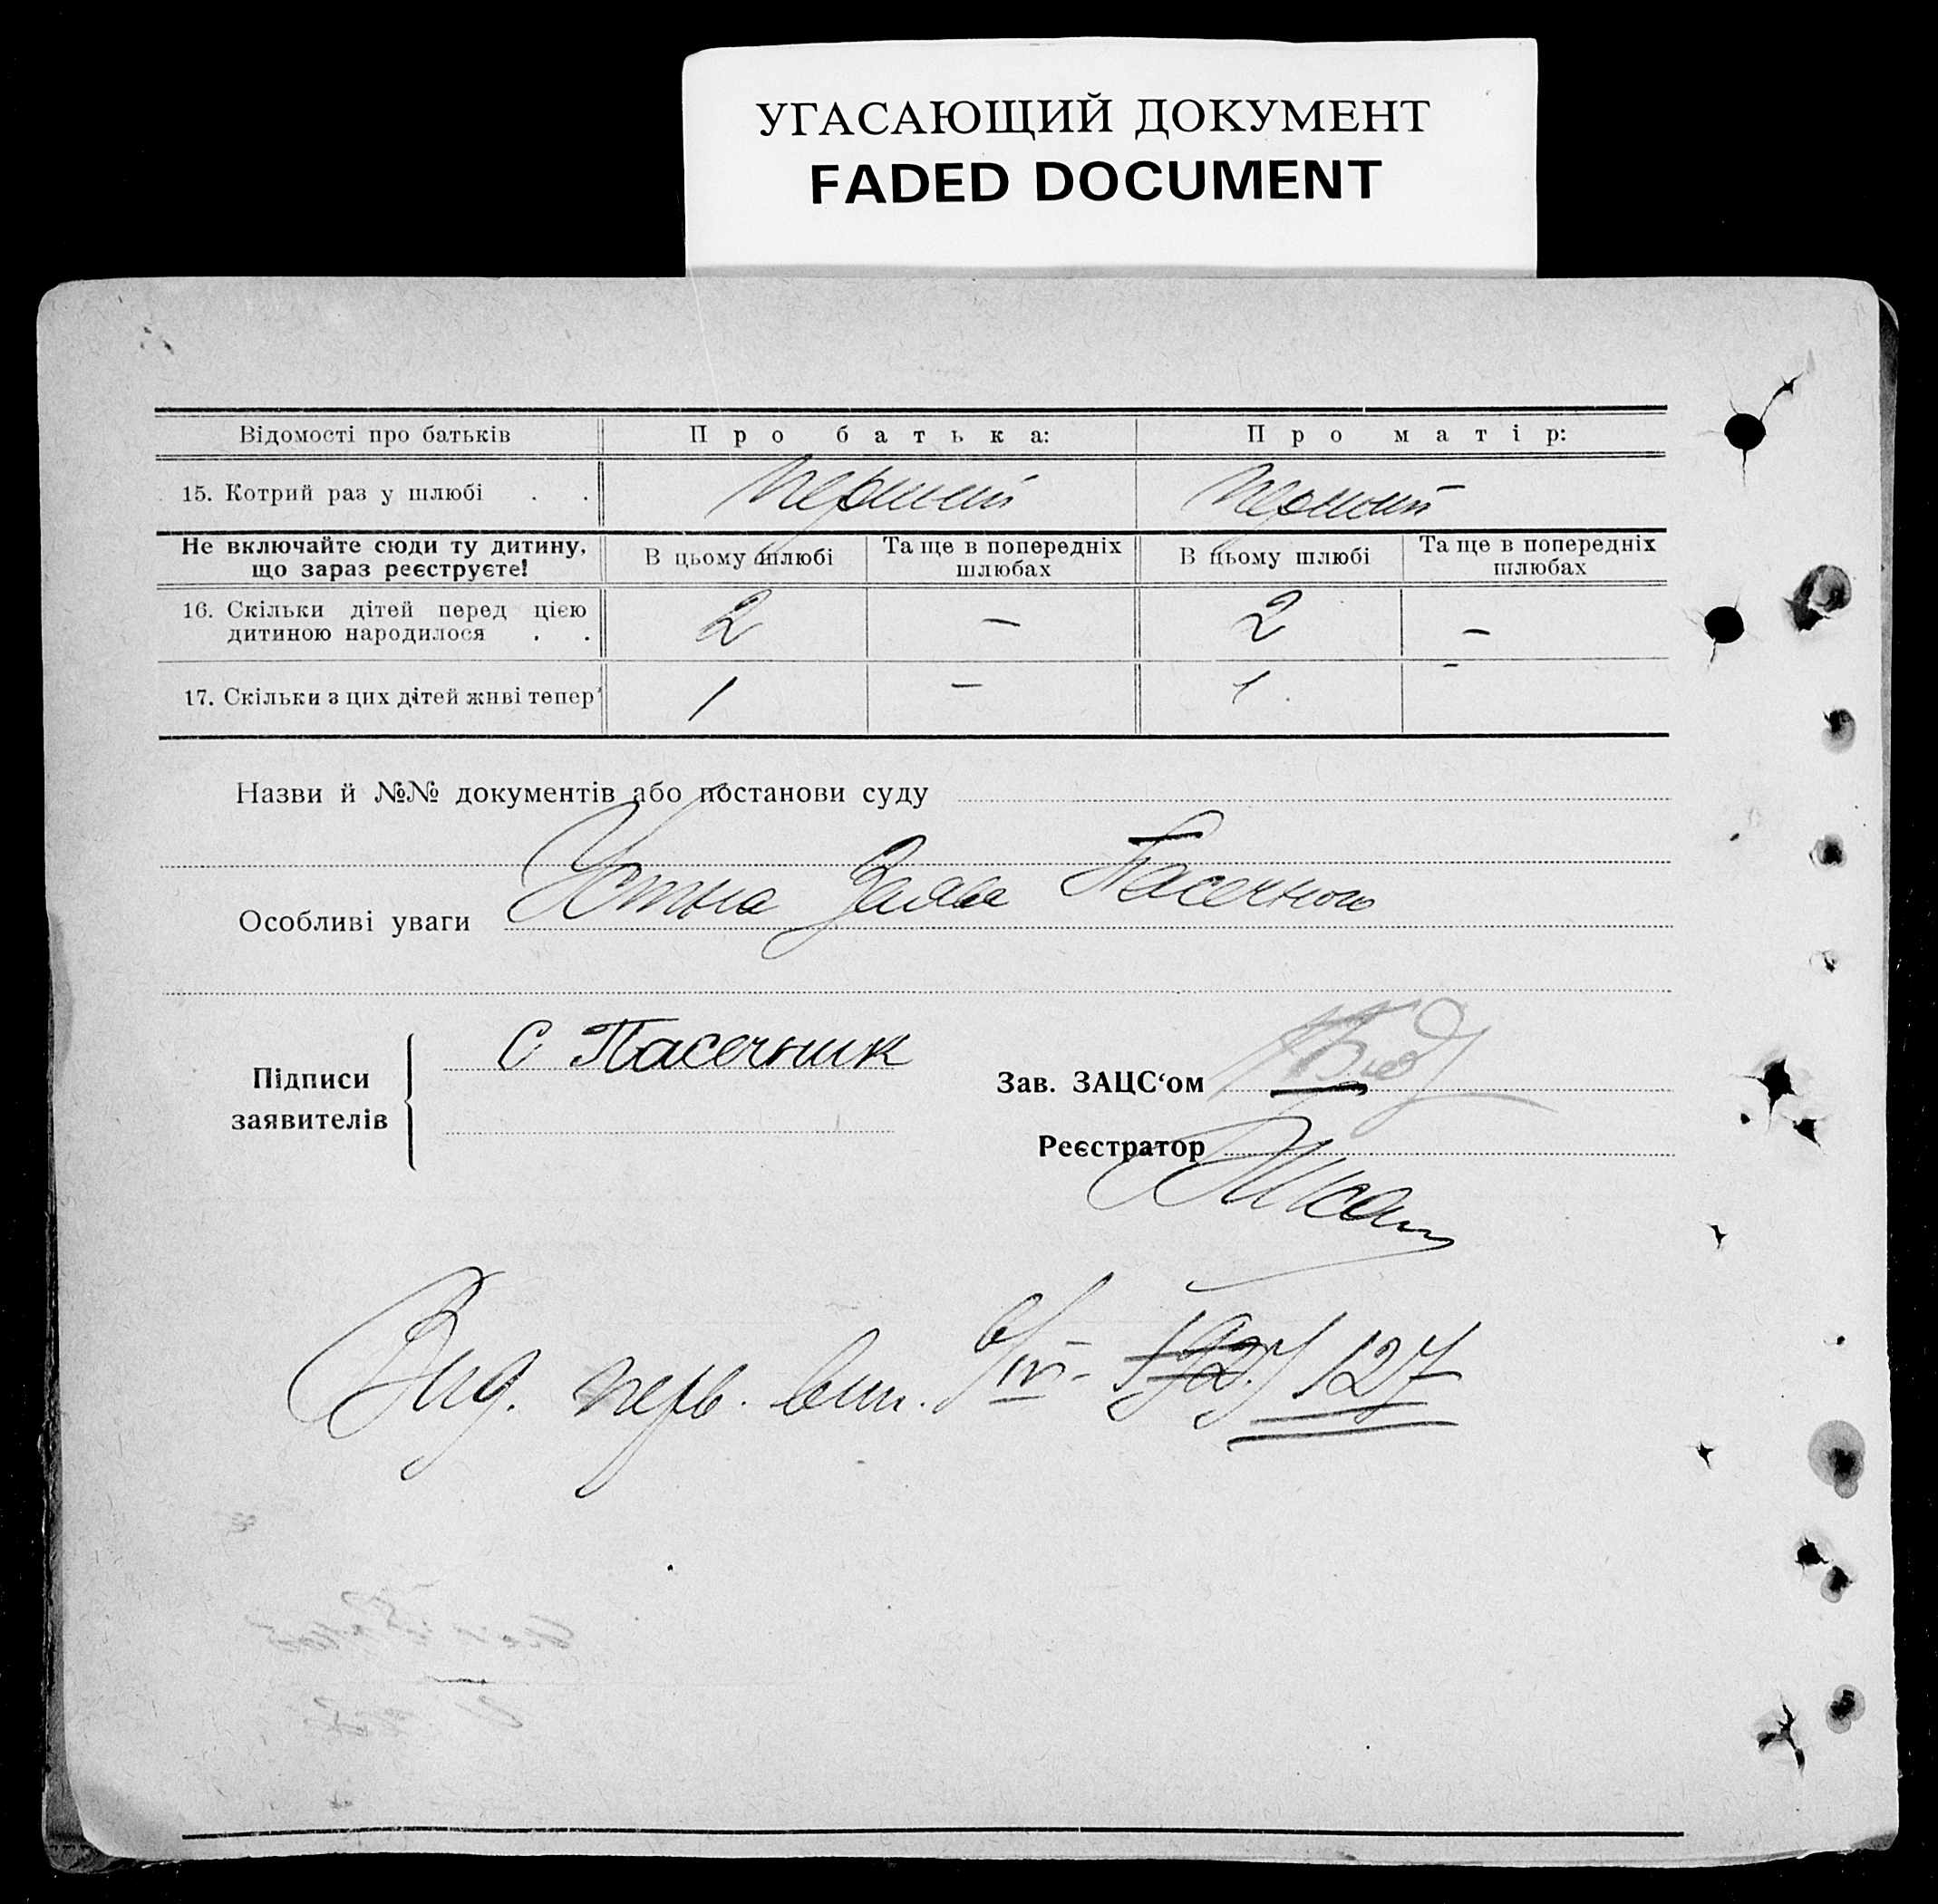 УГАСАЮЩИЙ ДОКУМЕНТ
FADED DOCUMENT
Відомості про батьків Про батька: Про матір:
15. Котрий раз у шлюбі . . перший перший
Не включайте сюди ту дитину, що зараз реєструєте! В цьому шлюбі Та ще в попередніх шлюбах В цьому шлюбі Та ще в попередніх шлюбах
16. Скільки дітей перед цією дитиною народилося . . 2 — 2 —
17. Скільки з цих дітей живі тепер 1 — 1 —
Назви й №№ документів або постанови суду
Устна заява Пасечного
Особливі уваги
Підписи заявителів
С Пасечник
Зав. ЗАЦС‘ом
Реєстратор
Вид. перв. вип. 6/IV- 127